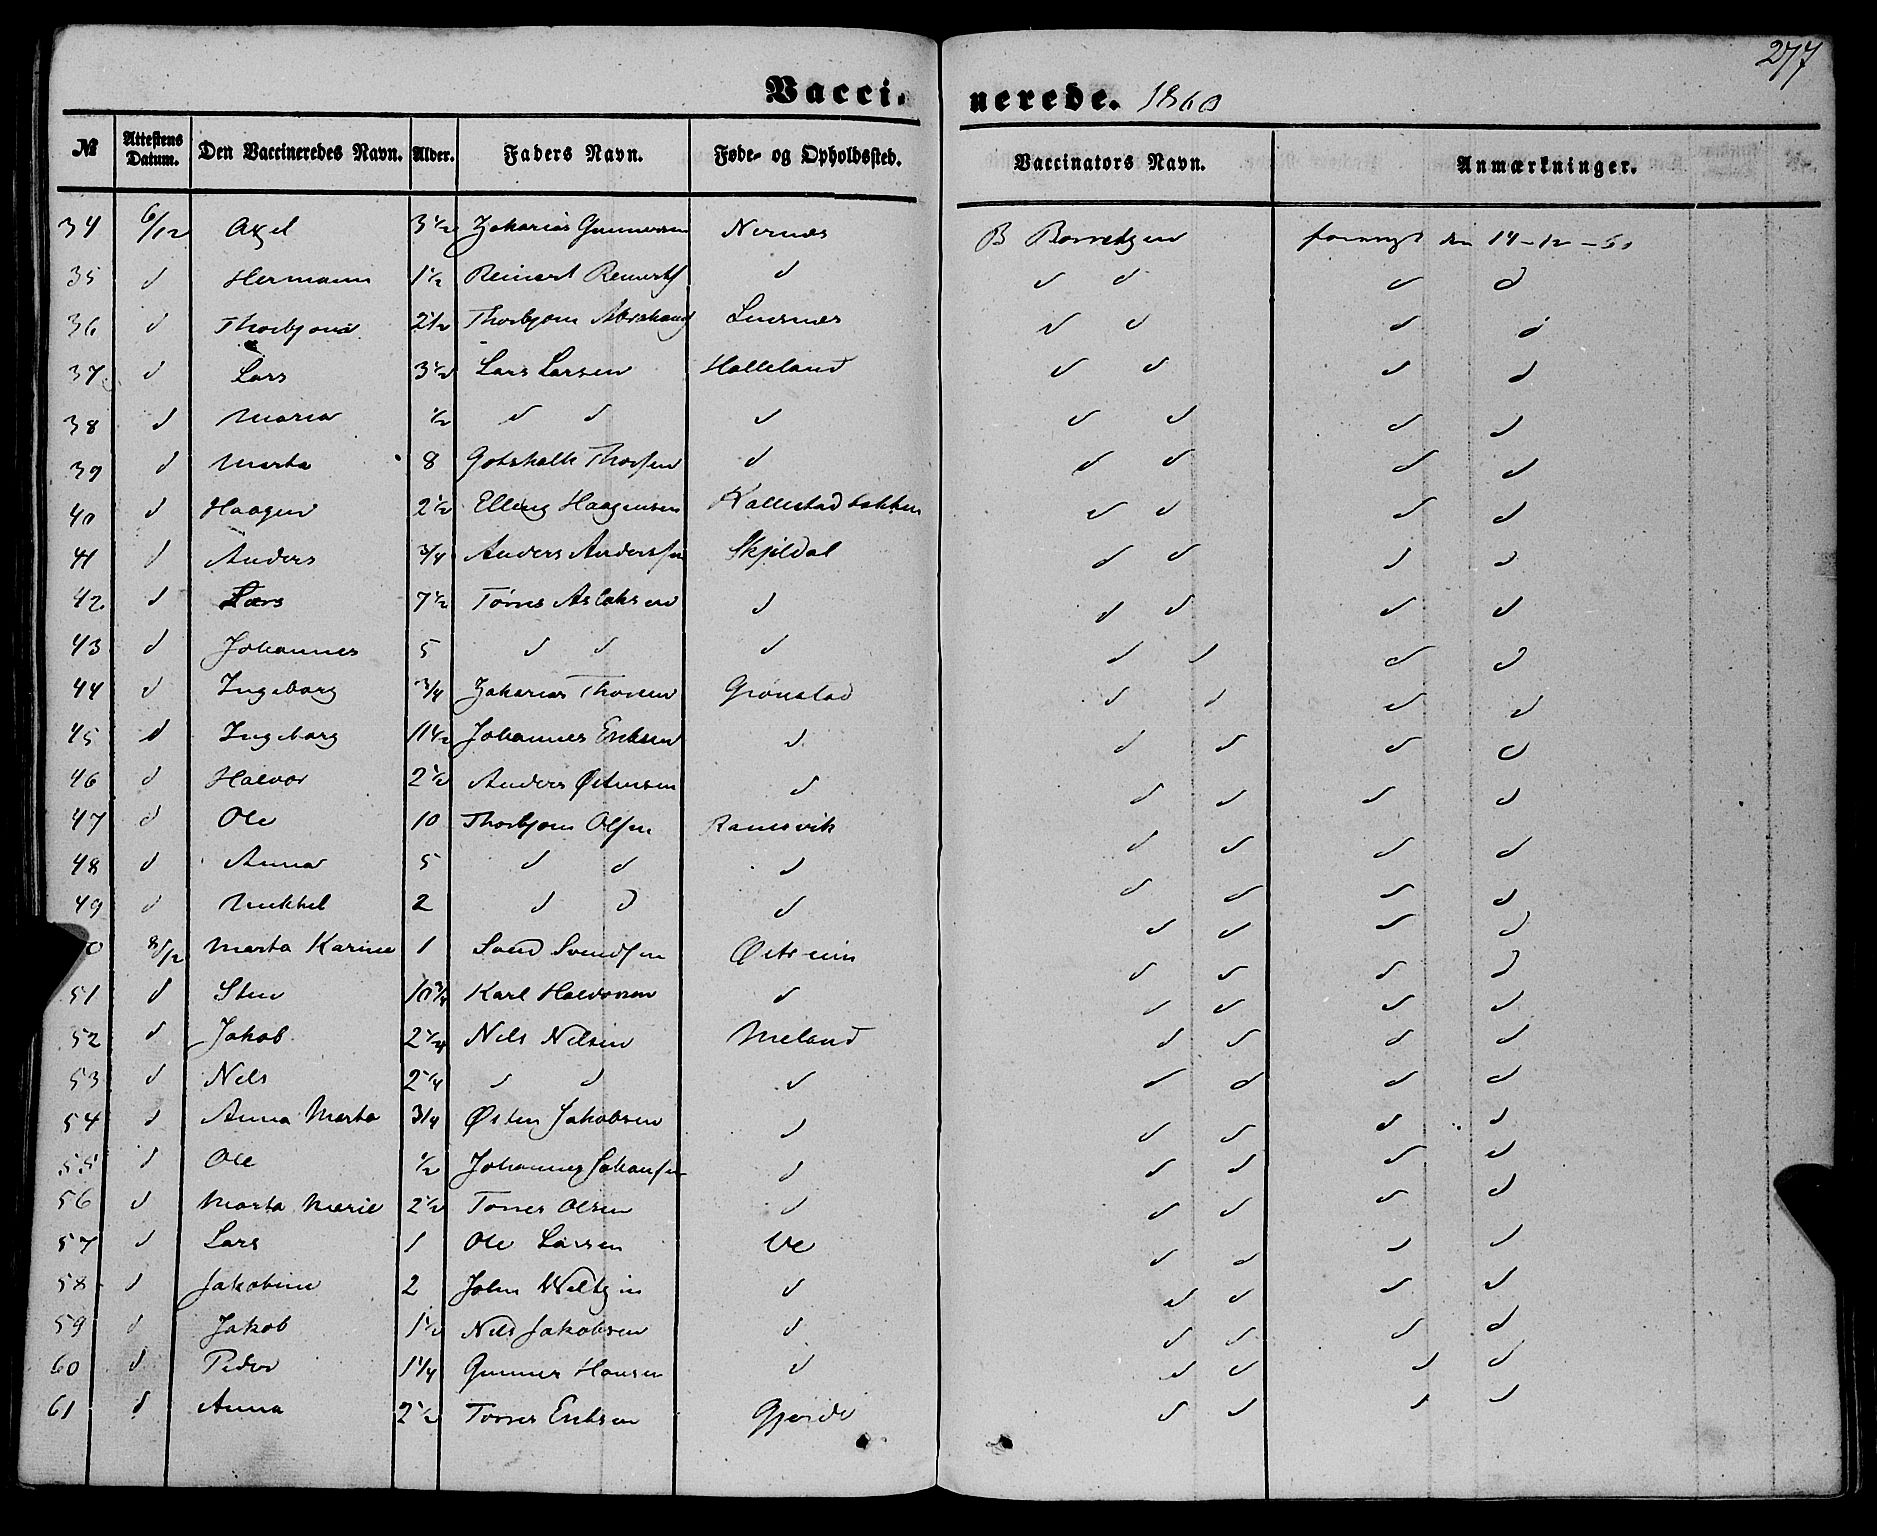 277
Vacci- nerede. 1860
№ Attestens Datum. Den Vaccineredes Navn. Alder. Faders Navn. Føde- og Opholdssted. Vaccinators Navn. Anmærkninger.
34 6/12 Axel 3 1/2 Zakarias Gunnersen Nernæs B
35 d Hermann 1 1/2 Reinert d d d d d
36 d 2 1/2 d d d d
37 d Lars 3 1/2 Lars Larsen Halleland d d d d
38 d Maria 1/2 d d d d d d d
39 d Marta 8 Gotskalk d d d d d
40 d Haagen 2 1/2 Elling Haagensen d d d d
41 d Anders 3/4 Anders Andersen Skjeldal d d d d
42 d Lars 7 1/2 Tørres Aslaksen d d d d d
43 d Johannes 5 d d d d d d d
44 d Ingeborg 3/4 Zakarias Thorsen Grønstad d d d d
45 d Ingeborg 11 1/2 Johannes Eriksen d d d d d
46 d Halvor 2 1/2 Anders Østensen d d d d d
47 d Ole 10 Thorbjørn Olsen Ramsvik d d d d
48 d Anna 5 d d d d d d d
49 d Mikkel 2 d d d d d d d
0 8/12 Marta Karine 1 Svend Svendsen Østreim d d d d
51 d Sten 10 3/4 Karl Halvorsen d d d d d
52 d Jakob 2 1/4 Nils Nilsen Meland d d d d
53 d Nels 2 1/4 d d d d d d d
54 d Anna Marta 3/4 Østen Jakobsen d d d d d
55 d Ole 1/2 Johannes Johansen d d d d d
56 d Marta Marie 2 1/2 Torres Olsen d d d d d
57 d Lars 1 Ole Larsen Ve d d d d
58 d Jakobine 2 John d d d d d
59 d Jakob 1 1/2 Nils Jakobsen d d d d d
60 d Peder 1 1/4 Gunner Hansen d d d d d
61 d Anna 2 1/2 Torres Eriksen Gjerde d d d d